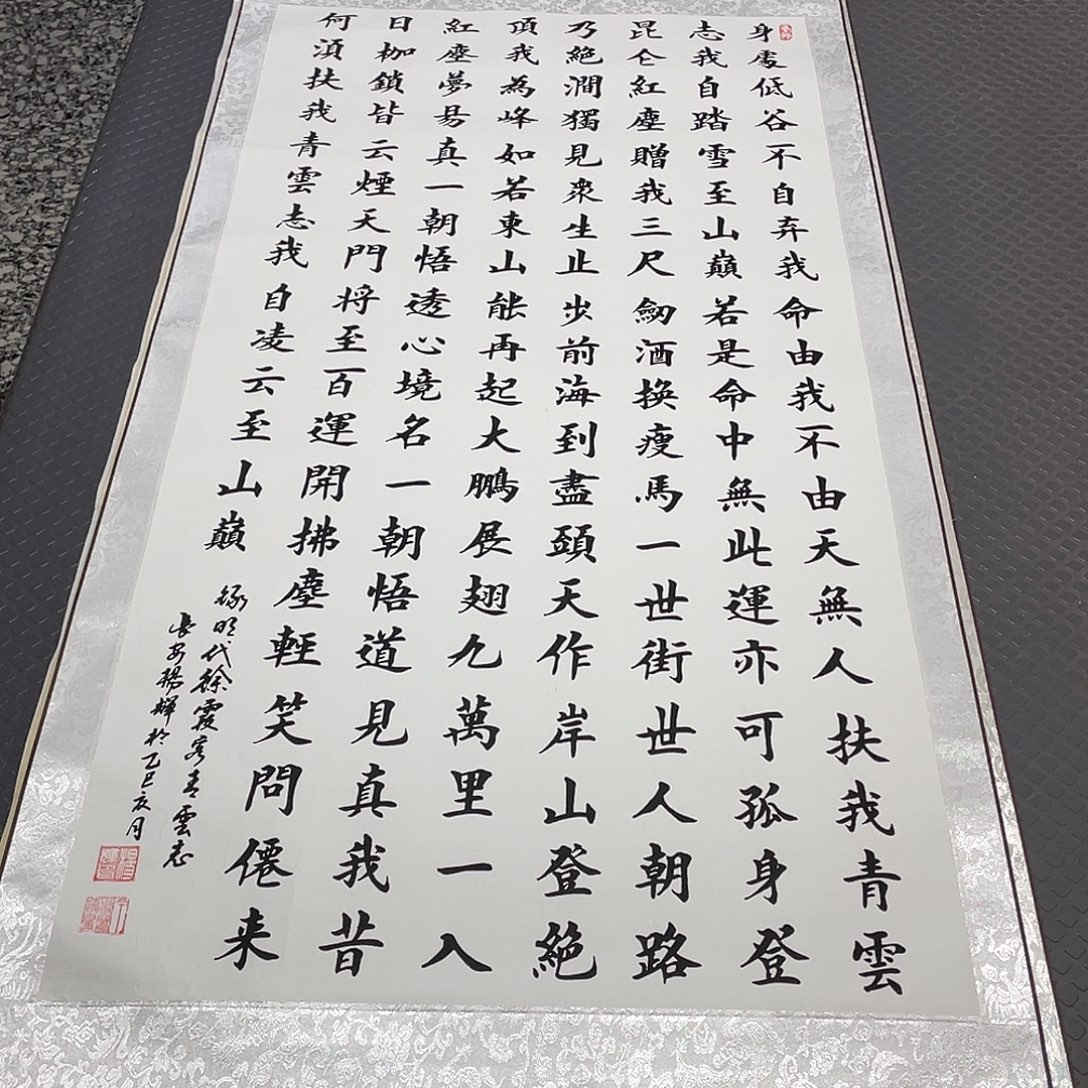 身處低谷不自弃我命由我不由天無人扶我青雲
志我自踏雪至山巔若是命中無此運亦可孤身登
昆仑紅塵贈我三尺劍酒換瘦馬一世街世人朝路
乃絕澗獨見衆生止步前海到盡頭天作岸山登絕
頂我為峰如若東山能再起大鵬展翅九萬里一入
紅塵夢易真一朝悟透心境名一朝悟道見真我昔
日枷鎖皆云煙天門将至百運開拂塵輕笑問僊来
何須扶我青雲志我自凌云至山巔
錄明代徐霞客青雲志
長安楊輝於乙巳亥月